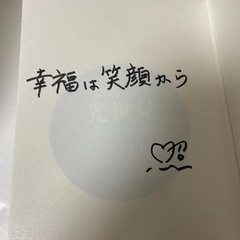 幸福は笑顔から